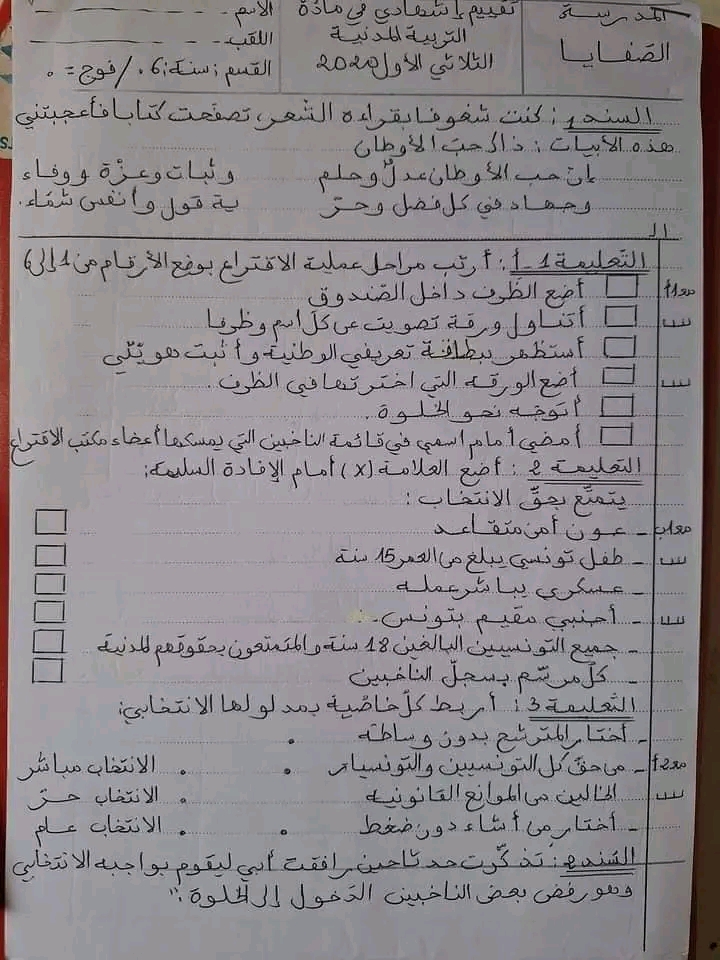 المدرسة
الصّفايا
تقييم إشهادي في مادّة
التربية المدنية
الثلاثي الأول 2020
الاسم
اللقب
القسم: سنة: 6. / فوج = .
السند 1: كنت شغوفا بقراءة الشّعر، تصفّحت كتابا فأعجبتني
هذه الأبيات: ذاك حبّ الأوطان
إنّ حب الأوطان عدل وحلم وثبات وعزّة ووفاء
وجهاد في كل فضل وحرّ ية قول وأنفس شمّاء.
التّعليمة 1 - أ: أرتّب مراحل عملية الاقتراع بوضع الأرقام من 1 إلى 6
أضع الظّرف داخل الصّندوق
أتناول ورقة تصويت عن كلّ اسم وظرفا
أستظهر ببطاقة تعريفي الوطنية وأثبت هويّتي
أضع الورقة التي اخترتها في الظرف.
أتوجّه نحو الخلوة.
أمضي أمام اسمي في قائمة الناخبين التي يمسكها أعضاء مكتب الاقتراع
التعليمة 2: أضع العلامة (x) أمام الإفادة السليمة:
يتمتّع بحقّ الانتخاب:
- عون أمن متقاعد
- طفل تونسي يبلغ من العمر 15 سنة
- عسكري يباشر عمله
- أجنبي مقيم بتونس.
- جميع التونسيين البالغين 18 سنة والمتمتعون بحقوقهم المدنية
- كلّ مرسّم بسجلّ الناخبين
التّعليمة 3: أربط كلّ خاصّية بمدلولها الانتخابي:
- أختار المترشح بدون وساطة
- من حقّ كل التونسيين والتونسيات الانتخاب مباشر
الخالين من الموانع القانونية الانتخاب حرّ
- أختار من أشاء دون ضغط الانتخاب عام
السّند 2: تذكّرت حدثا حين رافقت أبي ليقوم بواجبه الانتخابي
وهو رفض بعض الناخبين الدّخول إلى الخلوة."